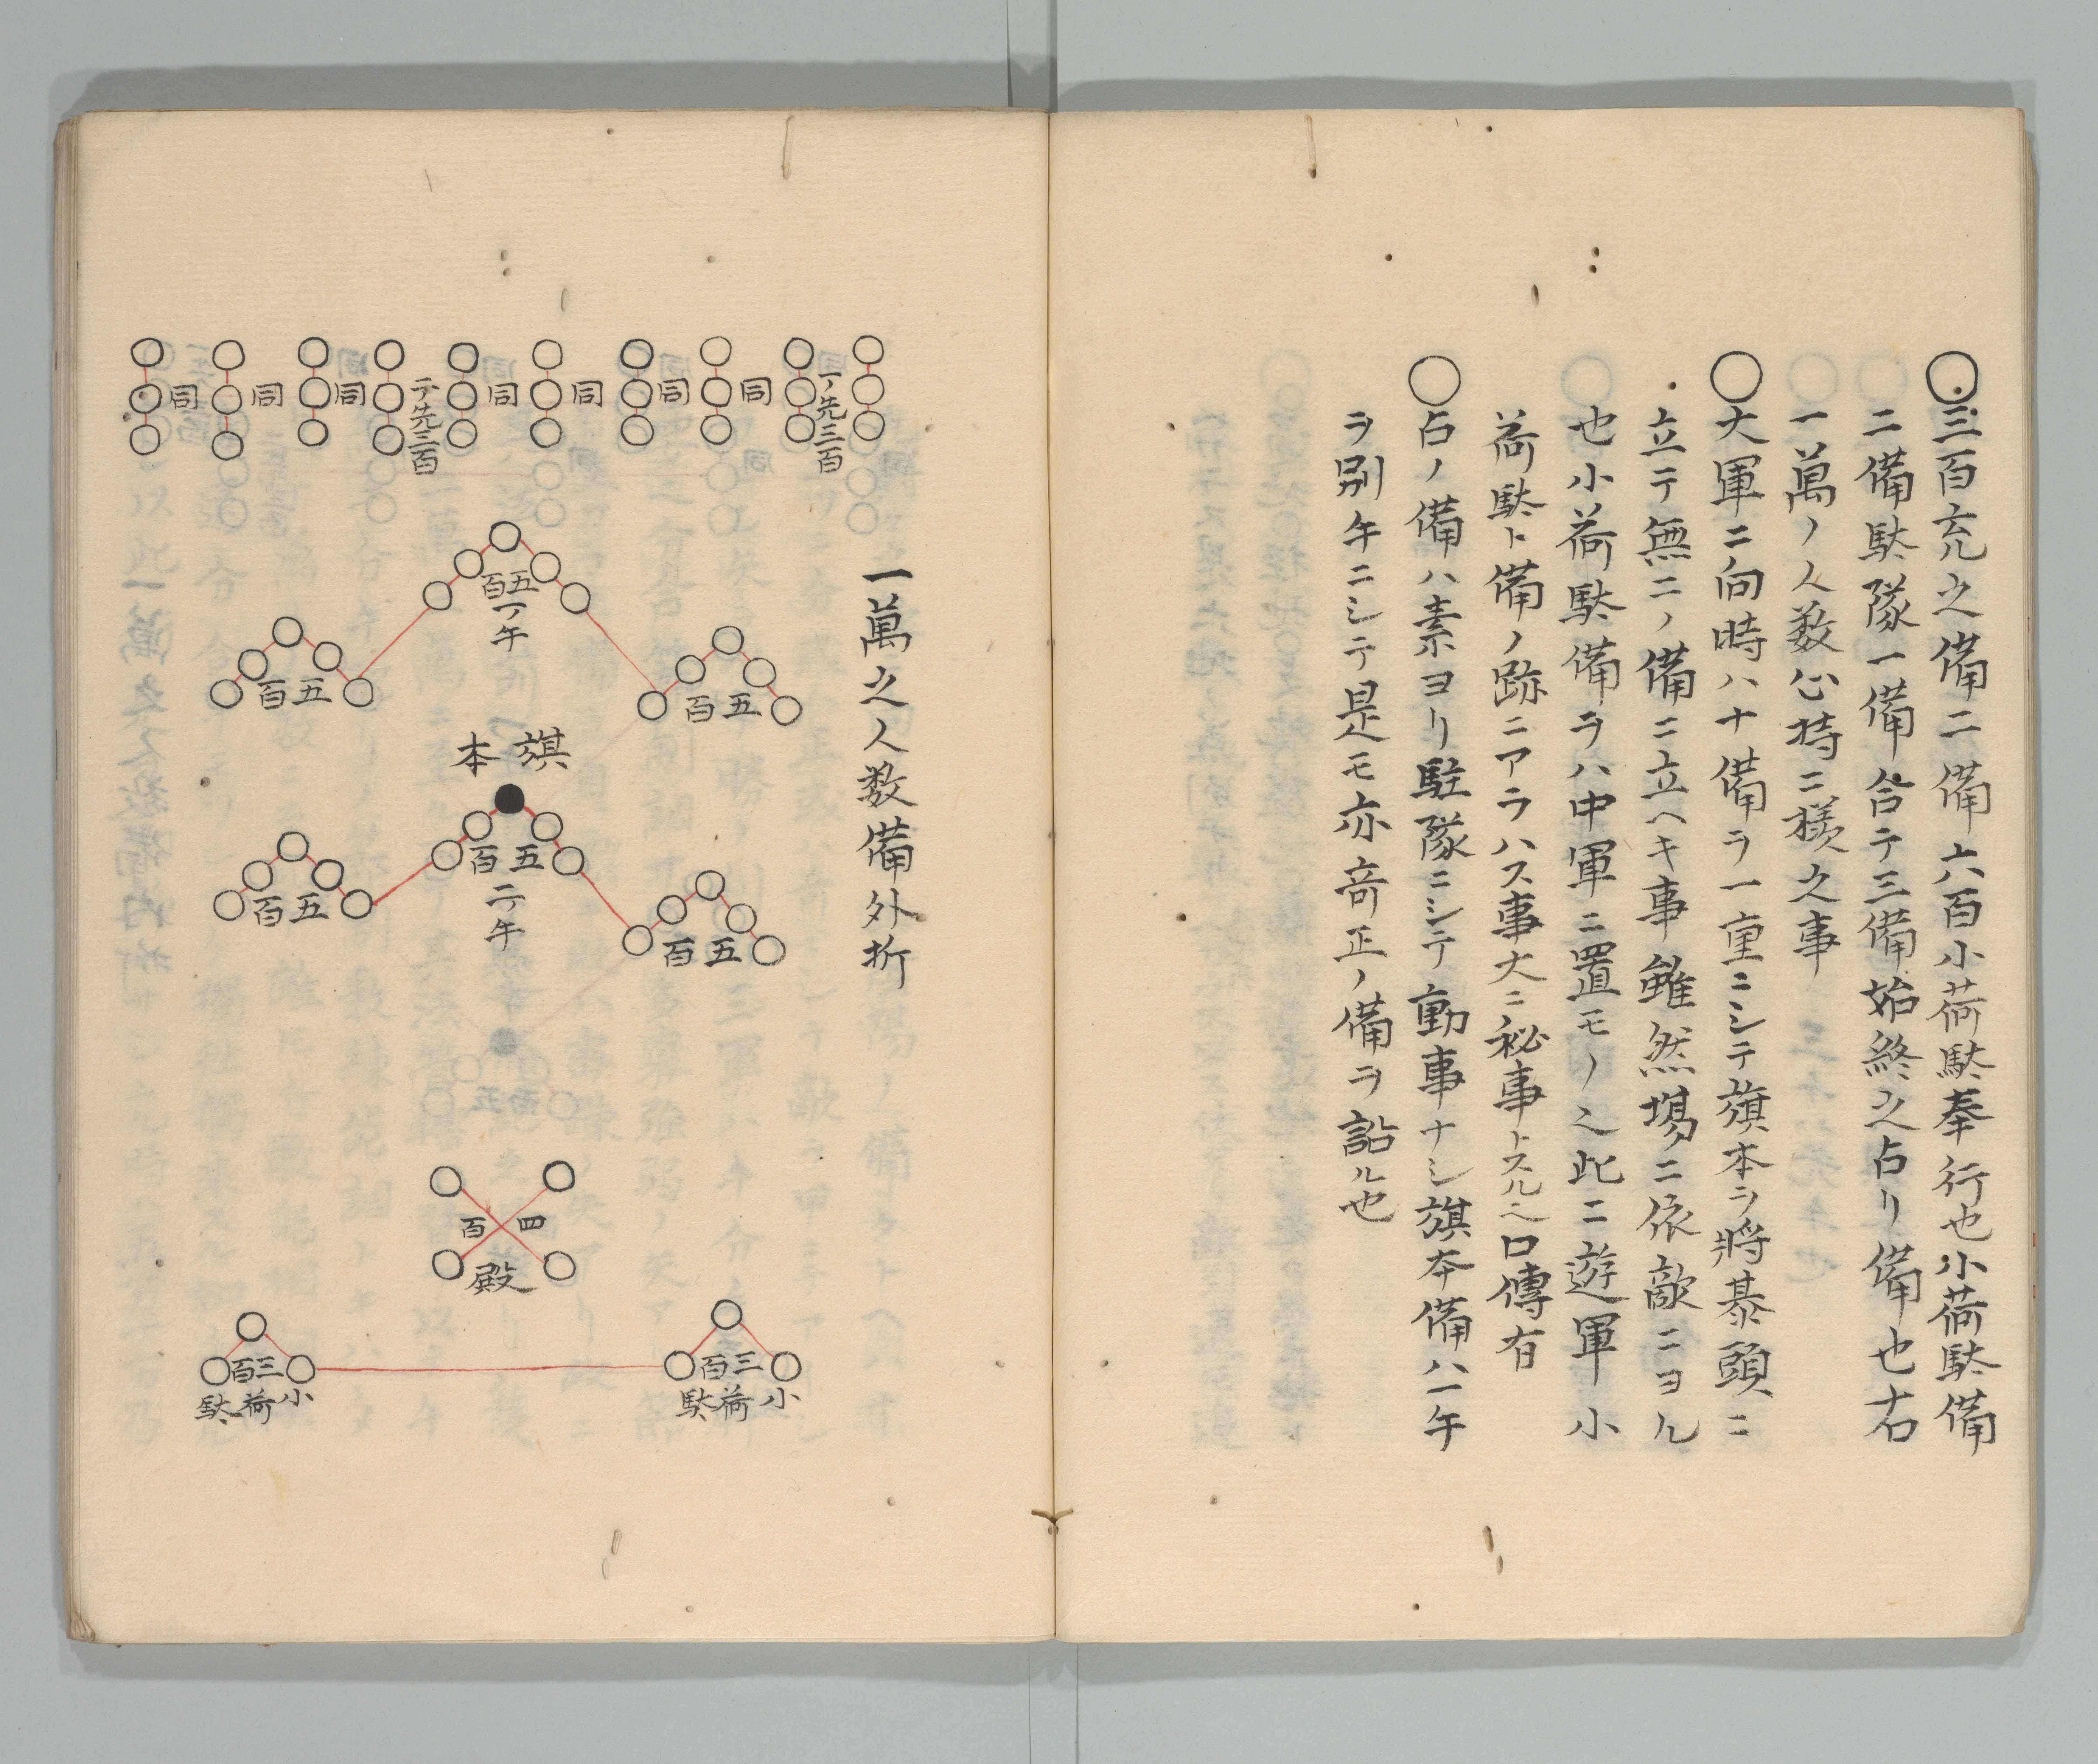 ○三百充之備二備六百小荷駄奉行也小荷駄備
二備駄隊一備合テ三備始終之占リ備也右
一萬ノ人数心持ニ様之事
○大軍ニ向時ハ十備ヲ一重ニシテ旗本ヲ将棊頭ニ
立テ無二ノ備ニ立ヘキ事雖然場ニ依敵ニヨル
也小荷駄備ヲハ中軍ニ置モノ也此ニ遊軍小
荷駄ト備ノ跡ニアラハス事大ニ秘事トスル也口傳有
○占ノ備ハ素ヨリ駐隊ニシテ動事ナシ旗本備ハ一手
ヲ別手ニシテ是モ亦奇正ノ備ヲ詔ル也
一萬之人数備外折
一ノ先三百
同
同
同
同
二ノ先三百
同
同
同
五百
一ノ手
五百
五百
旗本
五百
二ノ手
五百
五百
四百
殿
三百
小荷駄
三百
小荷駄